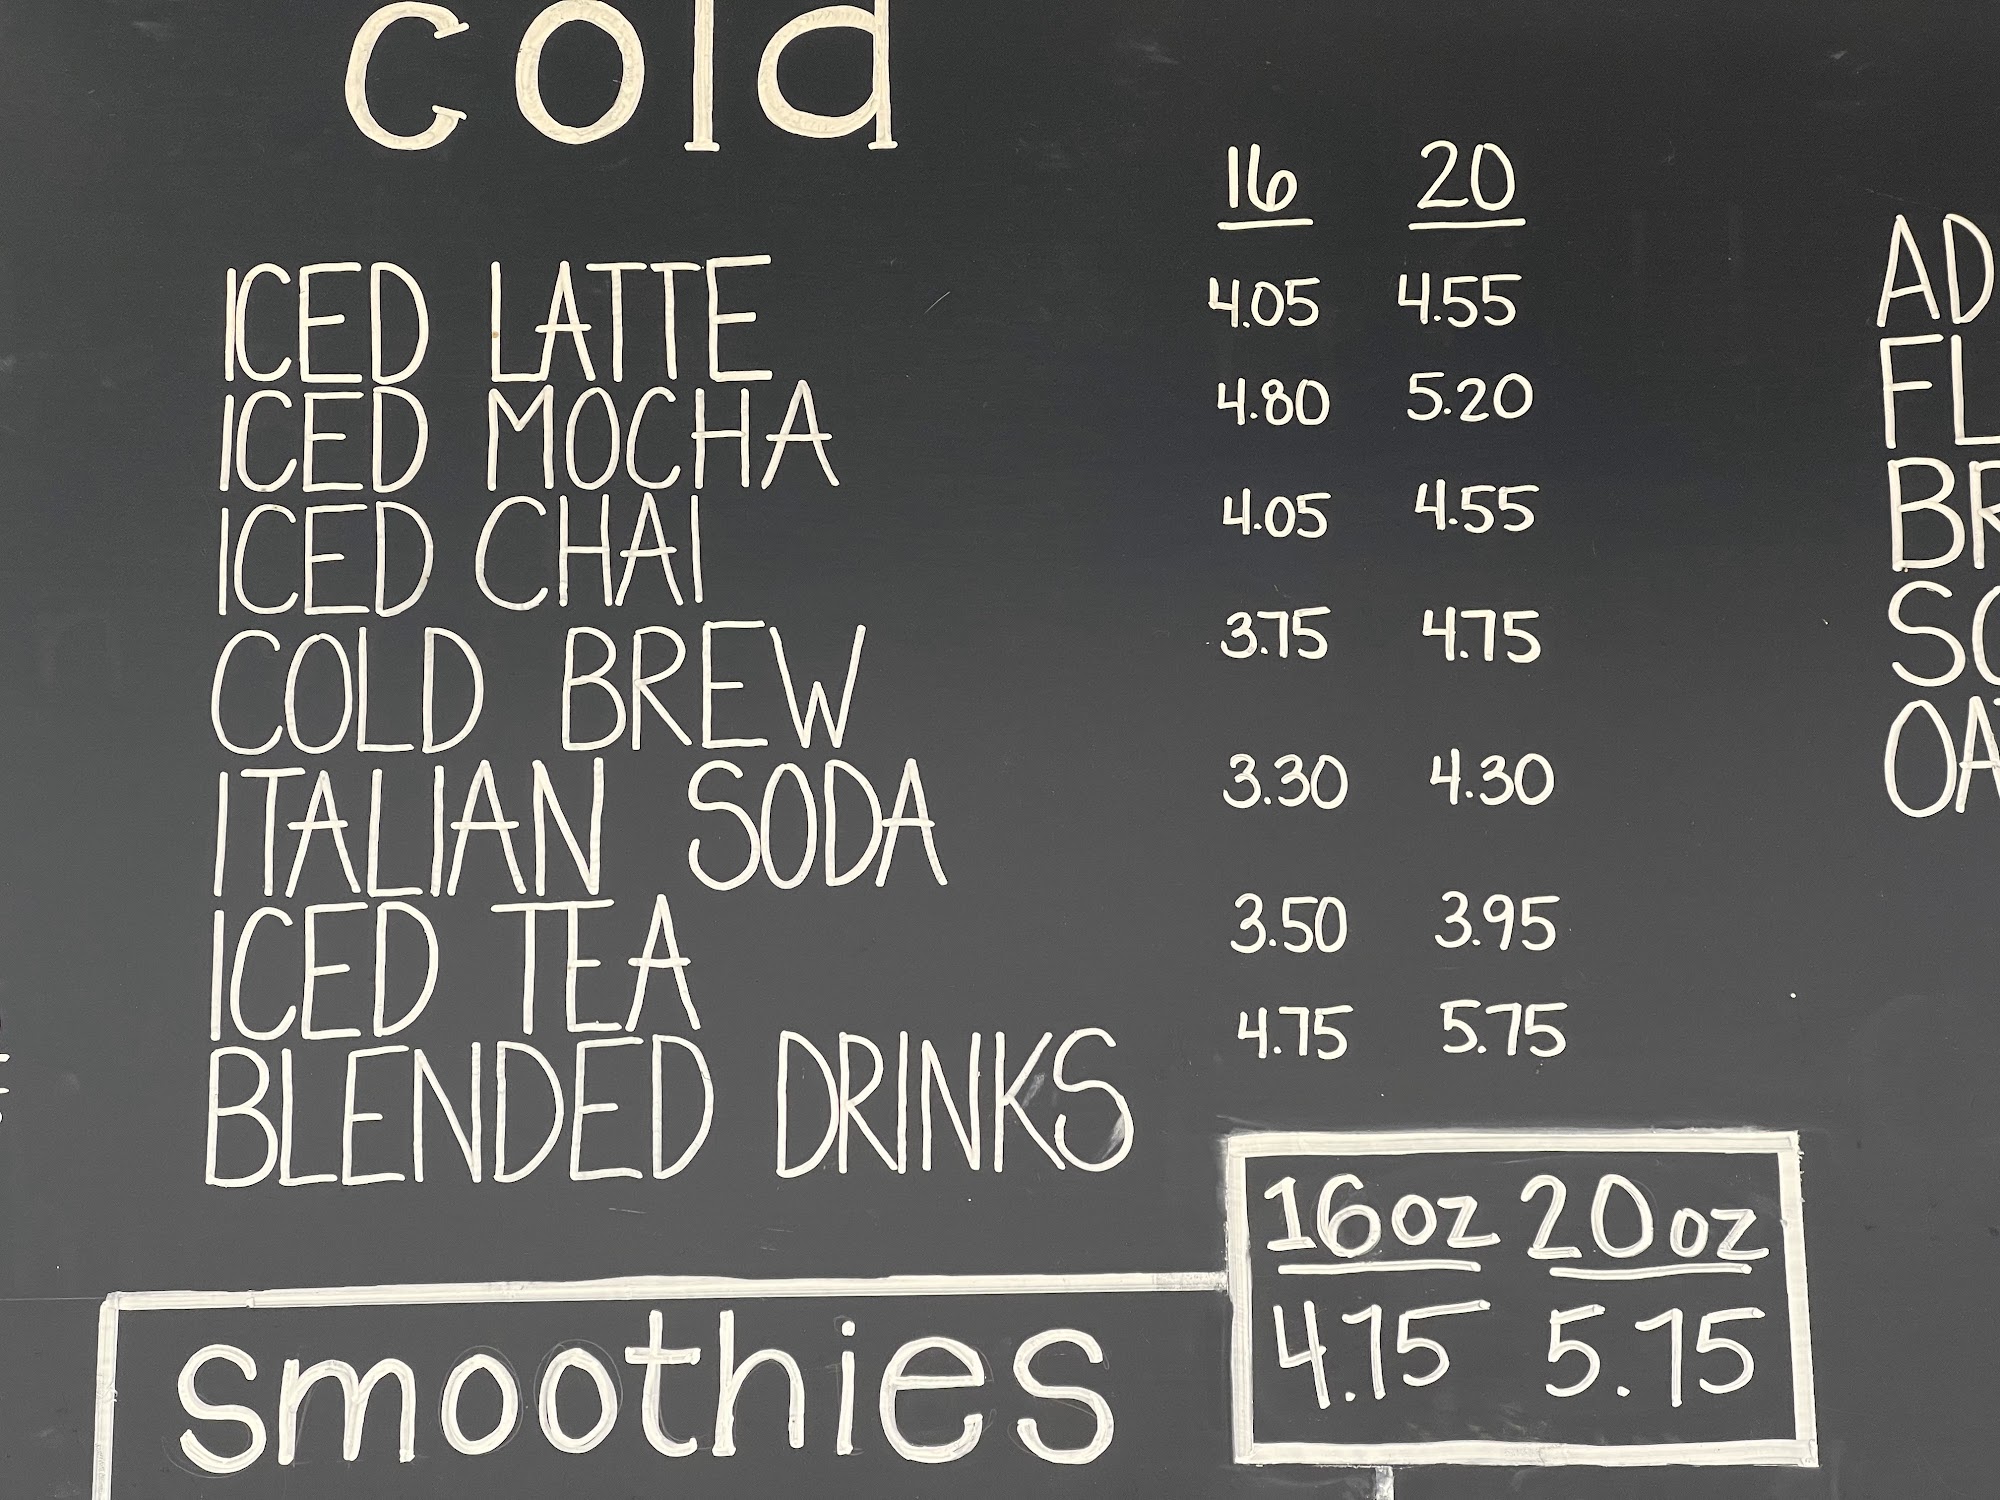 cold
16 20
ICED LATTE 4.05 4.55
ICED MOCHA 4.80 5.20
ICED CHAI 4.05 4.55
COLD BREW 3.75 4.75
ITALIAN SODA 3.30 4.30
ICED TEA 3.50 3.95
BLENDED DRINKS 4.75 5.75
smoothies
16oz 20oz
4.75 5.75
AD
FL
BR
SO
OA